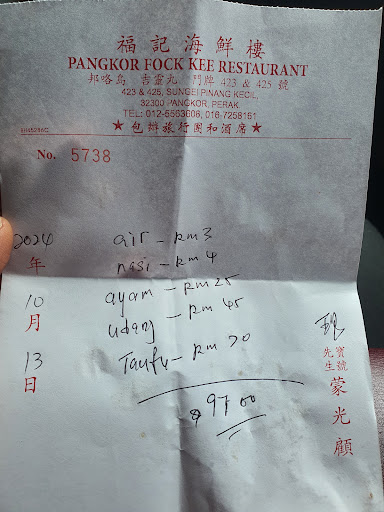 福記海鮮樓
PANGKOR FOCK KEE RESTAURANT
邦咯島 吉靈丸 門牌 423 & 425 號
423 & 425, SUNGEI PINANG KECIL,
32300 PANGKOR, PERAK.
TEL: 012-5563606, 016-7258161
★ 包辦旅行團和酒席 ★
No. 5738
2024 年 10 月 13 日
air - RM 3
nasi - RM 4
ayam - RM 25
udang - RM 45
Taufu - RM 20
97 00
寶號
先生
蒙光顧